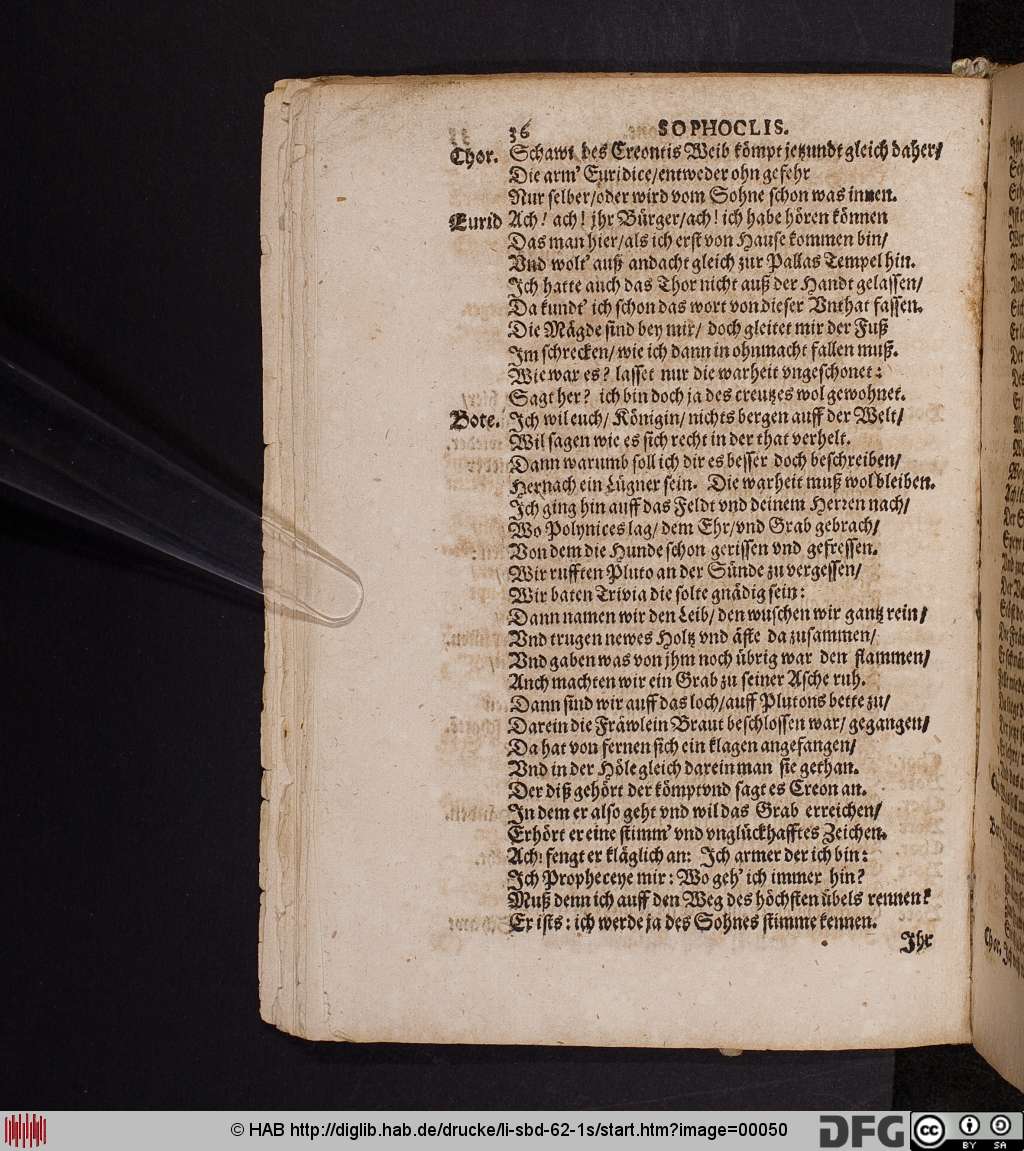 36 SOPHOCLIS.
Chor. Schawt des Creontis Weib kömpt jetzundt gleich daher/
Die arm' Euridice/entweder ohn gefehr
Nur selber/oder wird vom Sohne schon was innen.
Eurid Ach! ach! jhr Bürger/ach! ich habe hören können
Das man hier/als ich erst von Hause kommen bin/
Vnd wolt' auß andacht gleich zur Pallas Tempel hin.
Ich hatte auch das Thor nicht auß der Handt gelassen/
Da kundt' ich schon das wort von dieser Vnthat fassen.
Die Mägde sind bey mir/ doch gleitet mir der Fuß
Im schrecken/wie ich dann in ohnmacht fallen muß.
Wie war es? lasset nur die warheit vngeschonet:
Sagt her? ich bin doch ja des creutzes wol gewohnet.
Bote. Ich wil euch/ Königin/ nichts bergen auff der Welt/
Wil sagen wie es sich recht in der that verhelt.
Dann warumb soll ich dir es besser doch beschreiben/
Hernach ein Lügner sein. Die warheit muß wol bleiben.
Ich ging hin auff das Feldt vnd deinem Herren nach/
Wo Polynices lag/ dem Ehr/vnd Grab gebrach/
Von dem die Hunde schon gerissen vnd gefressen.
Wir rufften Pluto an der Sünde zu vergessen/
Wir baten Trivia die solte gnädig sein:
Dann namen wir den Leib/ den wuschen wir gantz rein/
Vnd trugen newes Holtz vnd äste da zusammen/
Vnd gaben was von jhm noch übrig war den flammen/
Anch machten wir ein Grab zu seiner Asche ruh.
Dann sind wir auff das loch/auff Plutons bette zu/
Darein die Fräwlein Braut beschlossen war/ gegangen/
Da hat von fernen sich ein klagen angefangen/
Vnd in der Höle gleich darein man sie gethan.
Der diß gehört der kömpt vnd sagt es Creon an.
In dem er also geht vnd wil das Grab erreichen/
Erhört er eine stimm' vnd vnglückhafftes Zeichen.
Ach! fengt er kläglich an: Ich armer der ich bin:
Ich Propheceye mir: Wo geh' ich immer hin?
Muß denn ich auff den Weg des höchsten übels rennen?
Er ists: ich werde ja des Sohnes stimme kennen.
Ihr
© HAB http://diglib.hab.de/drucke/li-sbd-62-1s/start.htm?image=00050
DFG
cc BY SA